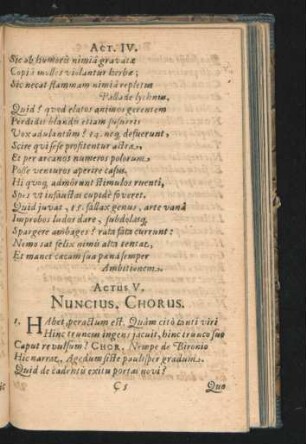 ACT. IV.
Sic ob humoris nimiá gravatæ
Copiâ molles violantur herbæ;
Sic necat flammam nimiâ repletus
Pallade lychnus.
Quid? quod elatos animos gerentem
Perdidit blandũ etiam susurri
Vox adulantũm? eq. neq; defuerunt,
Scire qui sese profitentur astra,
Et per arcanos numeros polorum
Posse venturos aperire casus.
Hi quoq, admôrunt stimulos ruenti,
Spes ut infaustas cupidè foveret.
Quid juvat, fallax genus, arte vanâ
Improbos ludos dare, subdolasq.
Spargere ambages? rata fata currunt:
Nemo sat felix nimis alta tentat,
Et manet cæcam sua pœna semper
Ambitionem.
ACTUS V.
NUNCIUS. CHORUS.
HAbet, peractum est. Quàm citò tanti viri
Hinc truncus ingens jacuit, hinc trunco suo
Caput revulsum? CHOR. Nempe de Bironio
Hic narrat. Agedum siste paulisper gradum.
Quid de cadentis exitu portas novi?
C 5 Quo